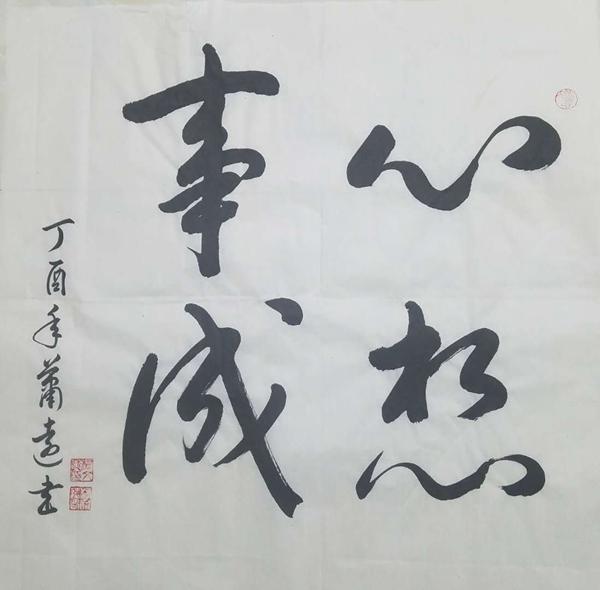 心想
事成
丁酉年蕭遠书